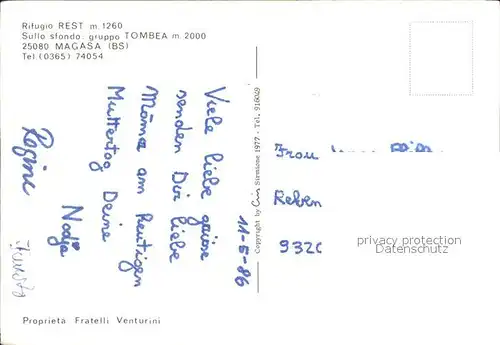 Rifugio REST m. 1260
Sullo sfondo: gruppo TOMBEA m. 2000
25080 MAGASA (BS)
Tel (0365) 74054
11-5-86
Viele liebe grüsse
senden Dir liebe
Mama am heutigen
Muttertag Deine
Nadja
Regine
Copyright by Cis Sirmione 1977 - Tel. 916049
Frau
Reben
932
privacy protection
Datenschutz
Proprietà Fratelli Venturini